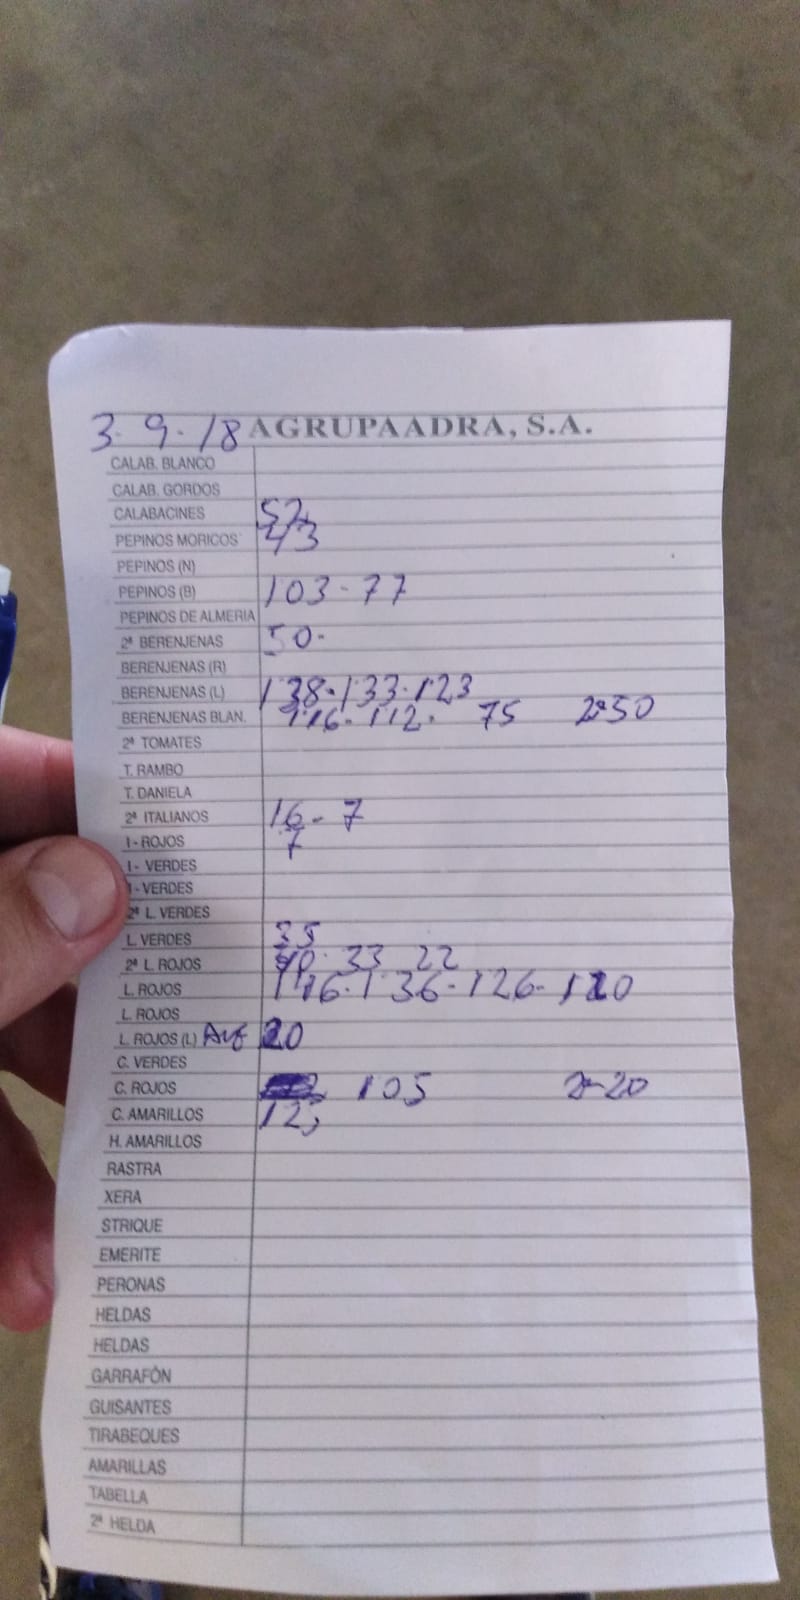 3-9-18 AGRUPAADRA, S.A.
CALAB. BLANCO
CALAB. GORDOS
CALABACINES 52
PEPINOS MORICOS 43
PEPINOS (N)
PEPINOS (B) 103-77
PEPINOS DE ALMERIA
2ª BERENJENAS 50-
BERENJENAS (R)
BERENJENAS (L) 138-133-123
BERENJENAS BLAN. 116-112- 75 2ª50
2ª TOMATES
T. RAMBO
T. DANIELA
2ª ITALIANOS 16-7
I - ROJOS 7
I - VERDES
I - VERDES
2ª L. VERDES
L. VERDES 35
2ª L. ROJOS 40- 33 22
L. ROJOS 136-126-120
L. ROJOS
L. ROJOS (L) 20
C. VERDES
C. ROJOS 105 2ª-20
C. AMARILLOS 125
H. AMARILLOS
RASTRA
XERA
STRIQUE
EMERITE
PERONAS
HELDAS
HELDAS
GARRAFÓN
GUISANTES
TIRABEQUES
AMARILLAS
TABELLA
2ª HELDA